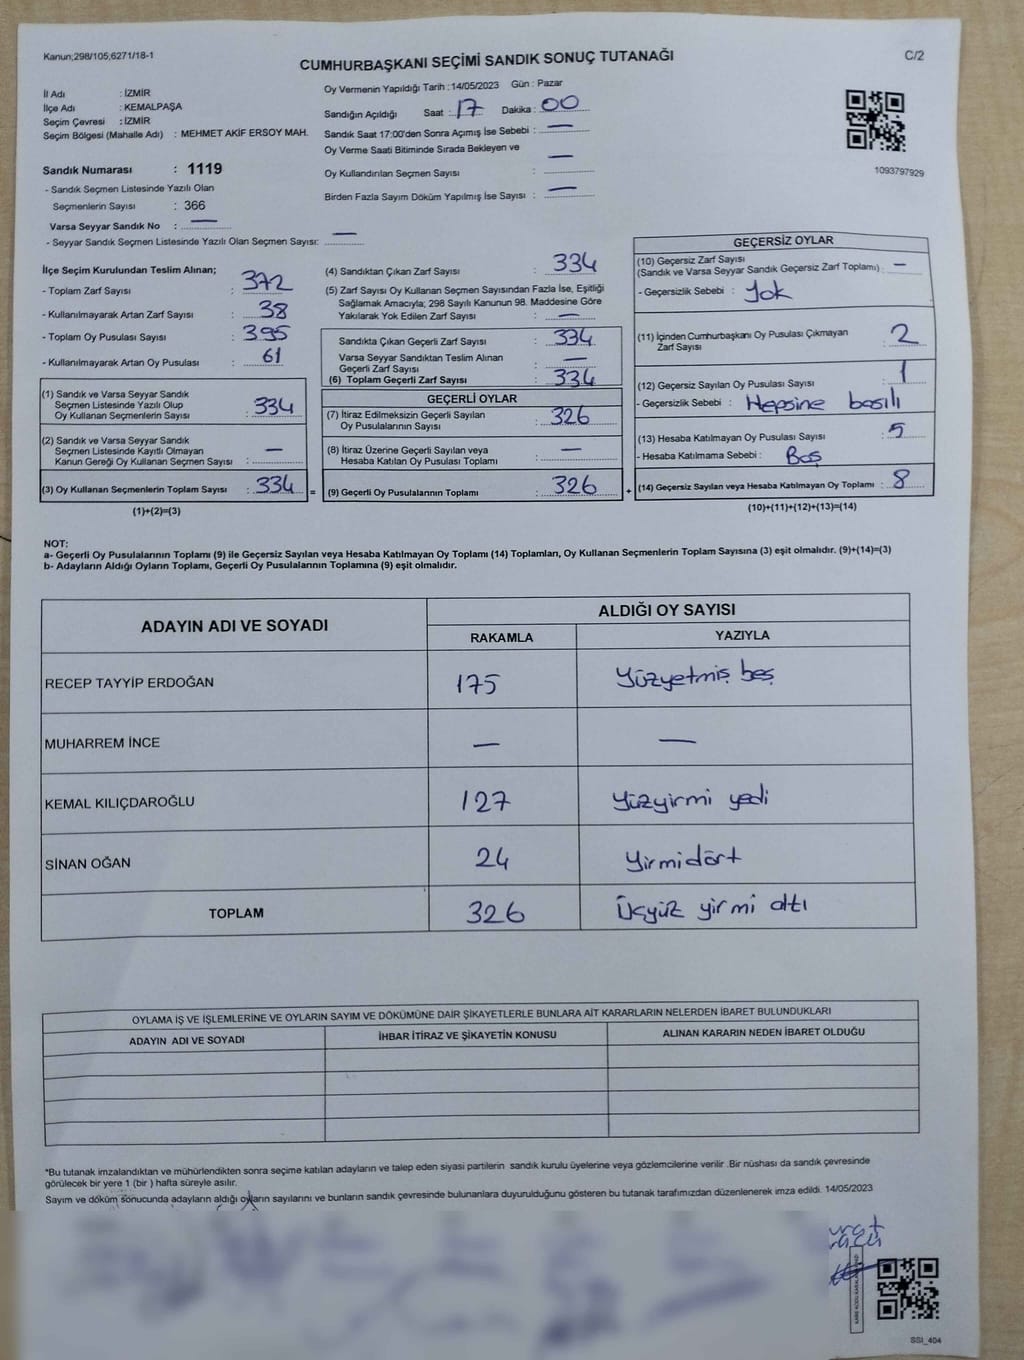 Kanun;298/105;6271/18-1
CUMHURBAŞKANI SEÇİMİ SANDIK SONUÇ TUTANAĞI
C/2
İl Adı : İZMİR
İlçe Adı : KEMALPAŞA
Seçim Çevresi : İZMİR
Seçim Bölgesi (Mahalle Adı) : MEHMET AKİF ERSOY MAH.
Sandık Numarası : 1119
- Sandık Seçmen Listesinde Yazılı Olan
Seçmenlerin Sayısı : 366
Varsa Seyyar Sandık No : —
- Seyyar Sandık Seçmen Listesinde Yazılı Olan Seçmen Sayısı: —
Oy Vermenin Yapıldığı Tarih : 14/05/2023 Gün : Pazar
Sandığın Açıldığı Saat : 17 Dakika : 00
Sandık Saat 17:00'den Sonra Açımış İse Sebebi : —
Oy Verme Saati Bitiminde Sırada Bekleyen ve
Oy Kullandırılan Seçmen Sayısı : —
Birden Fazla Sayım Döküm Yapılmış İse Sayısı : —
1093797929
İlçe Seçim Kurulundan Teslim Alınan;
- Toplam Zarf Sayısı : 372
- Kullanılmayarak Artan Zarf Sayısı : 38
- Toplam Oy Pusulası Sayısı : 395
- Kullanılmayarak Artan Oy Pusulası : 61
(1) Sandık ve Varsa Seyyar Sandık
Seçmen Listesinde Yazılı Olup
Oy Kullanan Seçmenlerin Sayısı : 334
(2) Sandık ve Varsa Seyyar Sandık
Seçmen Listesinde Kayıtlı Olmayan
Kanun Gereği Oy Kullanan Seçmen Sayısı : —
(3) Oy Kullanan Seçmenlerin Toplam Sayısı : 334 =
(1)+(2)=(3)
(4) Sandıktan Çıkan Zarf Sayısı : 334
(5) Zarf Sayısı Oy Kullanan Seçmen Sayısından Fazla İse, Eşitliği
Sağlamak Amacıyla; 298 Sayılı Kanunun 98. Maddesine Göre
Yakılarak Yok Edilen Zarf Sayısı : —
Sandıkta Çıkan Geçerli Zarf Sayısı : 334
Varsa Seyyar Sandıktan Teslim Alınan
Geçerli Zarf Sayısı : —
(6) Toplam Geçerli Zarf Sayısı : 334
GEÇERLİ OYLAR
(7) İtiraz Edilmeksizin Geçerli Sayılan
Oy Pusulalarının Sayısı : 326
(8) İtiraz Üzerine Geçerli Sayılan veya
Hesaba Katılan Oy Pusulası Toplamı : —
(9) Geçerli Oy Pusulalarının Toplamı : 326 +
GEÇERSİZ OYLAR
(10) Geçersiz Zarf Sayısı
(Sandık ve Varsa Seyyar Sandık Geçersiz Zarf Toplamı) : —
- Geçersizlik Sebebi : Yok
(11) İçinden Cumhurbaşkanı Oy Pusulası Çıkmayan
Zarf Sayısı : 2
(12) Geçersiz Sayılan Oy Pusulası Sayısı : 1
- Geçersizlik Sebebi : Hepsine basılı
(13) Hesaba Katılmayan Oy Pusulası Sayısı : 5
- Hesaba Katılmama Sebebi : Boş
(14) Geçersiz Sayılan veya Hesaba Katılmayan Oy Toplamı : 8
(10)+(11)+(12)+(13)=(14)
NOT:
a- Geçerli Oy Pusulalarının Toplamı (9) ile Geçersiz Sayılan veya Hesaba Katılmayan Oy Toplamı (14) Toplamları, Oy Kullanan Seçmenlerin Toplam Sayısına (3) eşit olmalıdır. (9)+(14)=(3)
b- Adayların Aldığı Oyların Toplamı, Geçerli Oy Pusulalarının Toplamına (9) eşit olmalıdır.
ADAYIN ADI VE SOYADI
ALDIĞI OY SAYISI
RAKAMLA YAZIYLA
RECEP TAYYİP ERDOĞAN 175 Yüzyetmiş beş
MUHARREM İNCE — —
KEMAL KILIÇDAROĞLU 127 Yüzyirmi yedi
SİNAN OĞAN 24 Yirmidört
TOPLAM 326 Üçyüz yirmi altı
OYLAMA İŞ VE İŞLEMLERİNE VE OYLARIN SAYIM VE DÖKÜMÜNE DAİR ŞİKAYETLERLE BUNLARA AİT KARARLARIN NELERDEN İBARET BULUNDUKLARI
ADAYIN ADI VE SOYADI İHBAR İTİRAZ VE ŞİKAYETİN KONUSU ALINAN KARARIN NEDEN İBARET OLDUĞU
*Bu tutanak imzalandıktan ve mühürlendikten sonra seçime katılan adayların ve talep eden siyasi partilerin sandık kurulu üyelerine veya gözlemcilerine verilir .Bir nüshası da sandık çevresinde
görülecek bir yere 1 (bir ) hafta süreyle asılır.
Sayım ve döküm sonucunda adayların aldığı oyların sayılarını ve bunların sandık çevresinde bulunanlara duyurulduğunu gösteren bu tutanak tarafımızdan düzenlenerek imza edildi. 14/05/2023
SSI_404